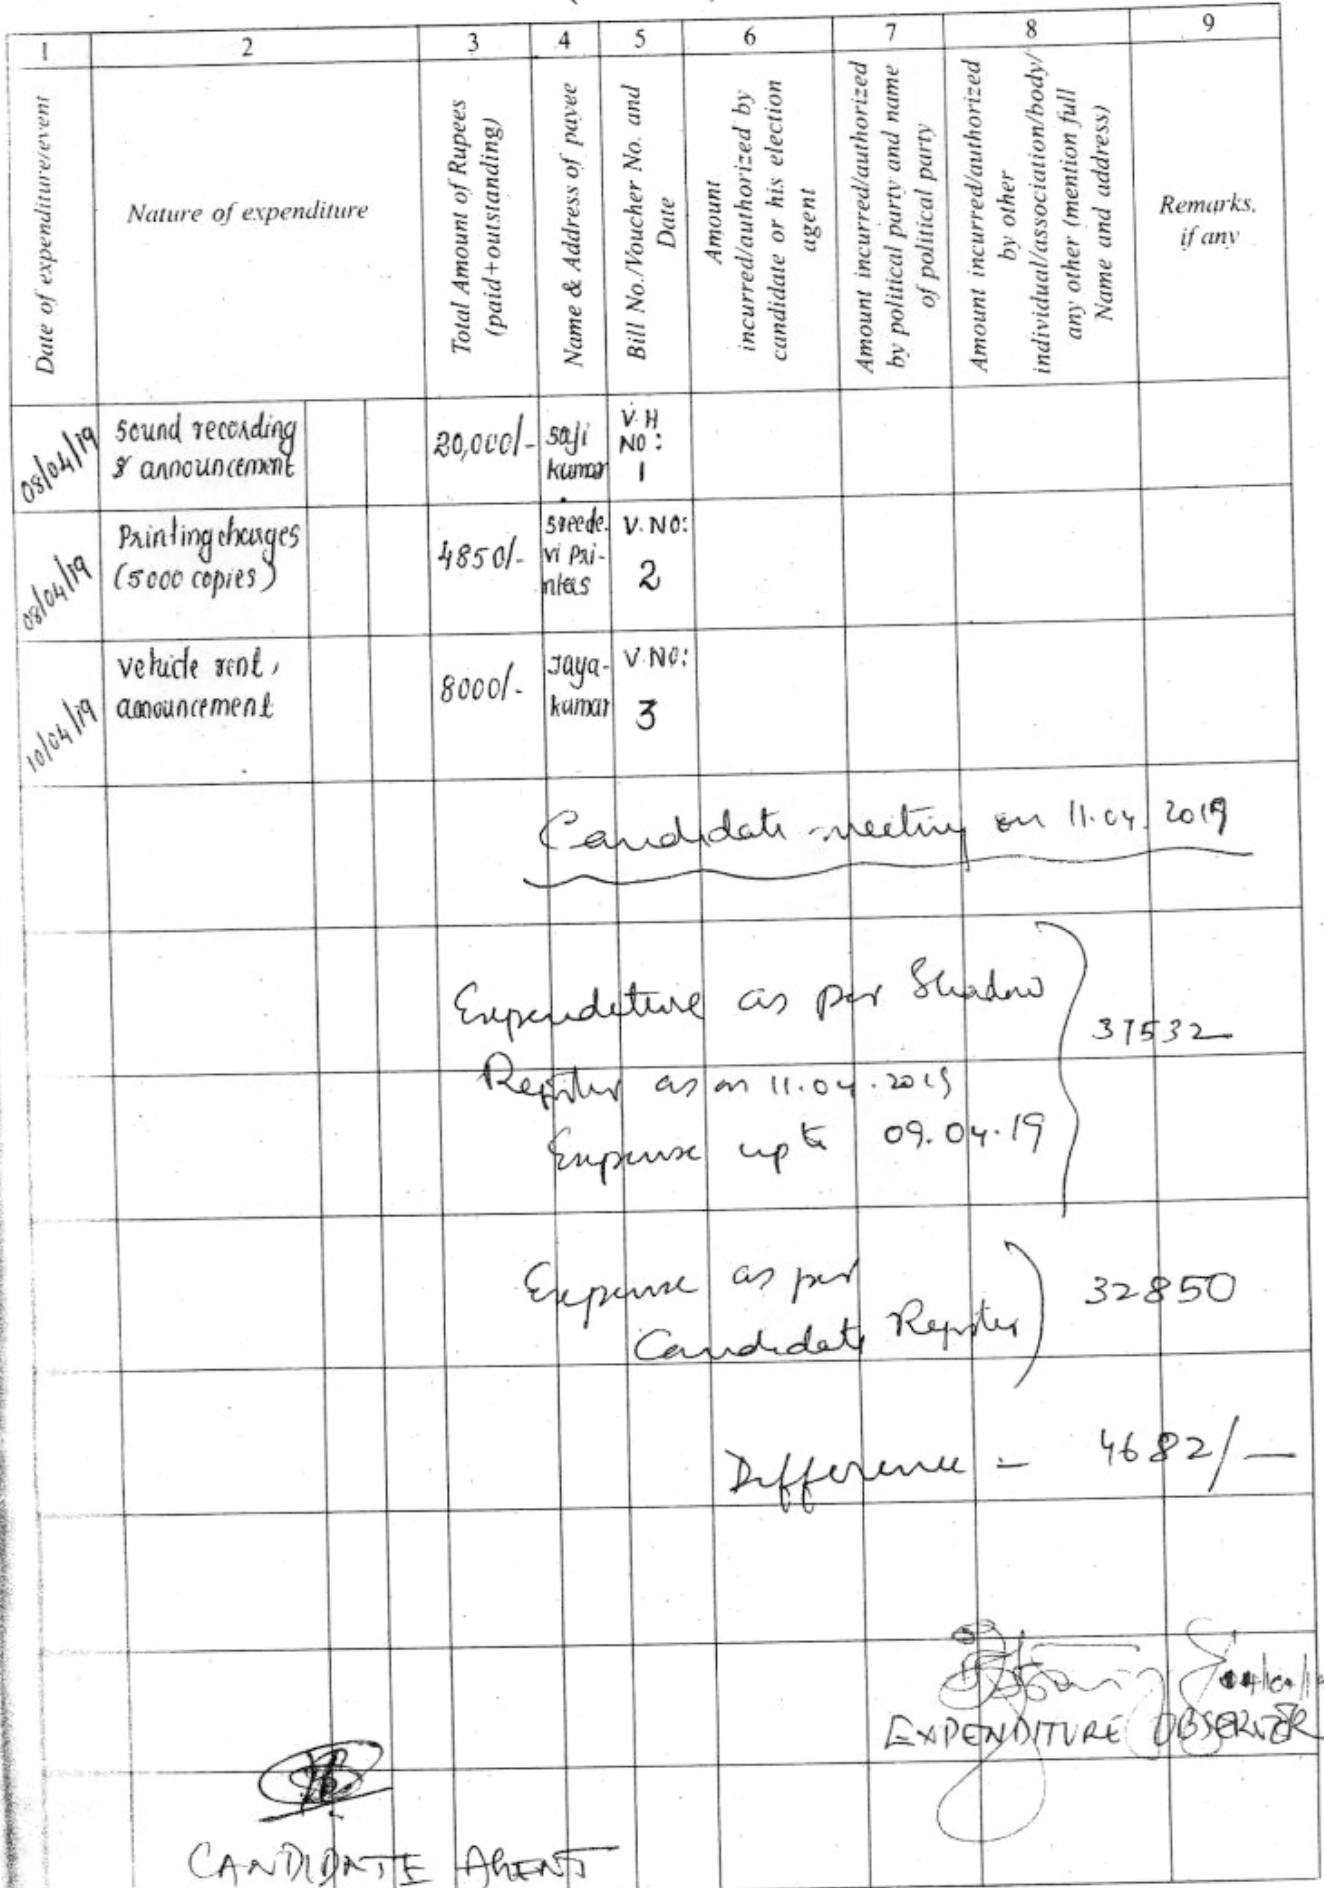 1 2 3 4 5 6 7 8 9
Date of expenditure/event
Nature of expenditure
Total Amount of Rupees
(paid+outstanding)
Name & Address of payee
Bill No./Voucher No. and
Date
Amount
incurred/authorized by
candidate or his election
agent
Amount incurred/authorized
by political party and name
of political party
Amount incurred/authorized
by other
individual/association/body/
any other (mention full
Name and address)
Remarks,
if any
08/04/19
Sound recording
& announcement
20,000/-
saji
kumar
V.H
NO:
1
08/04/19
Printing charges
(5000 copies)
4850/-
sreede.
vi Pri-
nters
V.NO:
2
10/04/19
vehicle rent,
announcement
8000/-
Jaya-
kumar
V.NO:
3
Candidate meeting on 11.04.2019
Expenditure as per Shadow
37532
Register as on 11.04.2019
Expense upto 09.04.19
Expense as per
32850
Candidate Register
Difference - 4682/-
EXPENDITURE OBSERVER
CANDIDATE AGENT